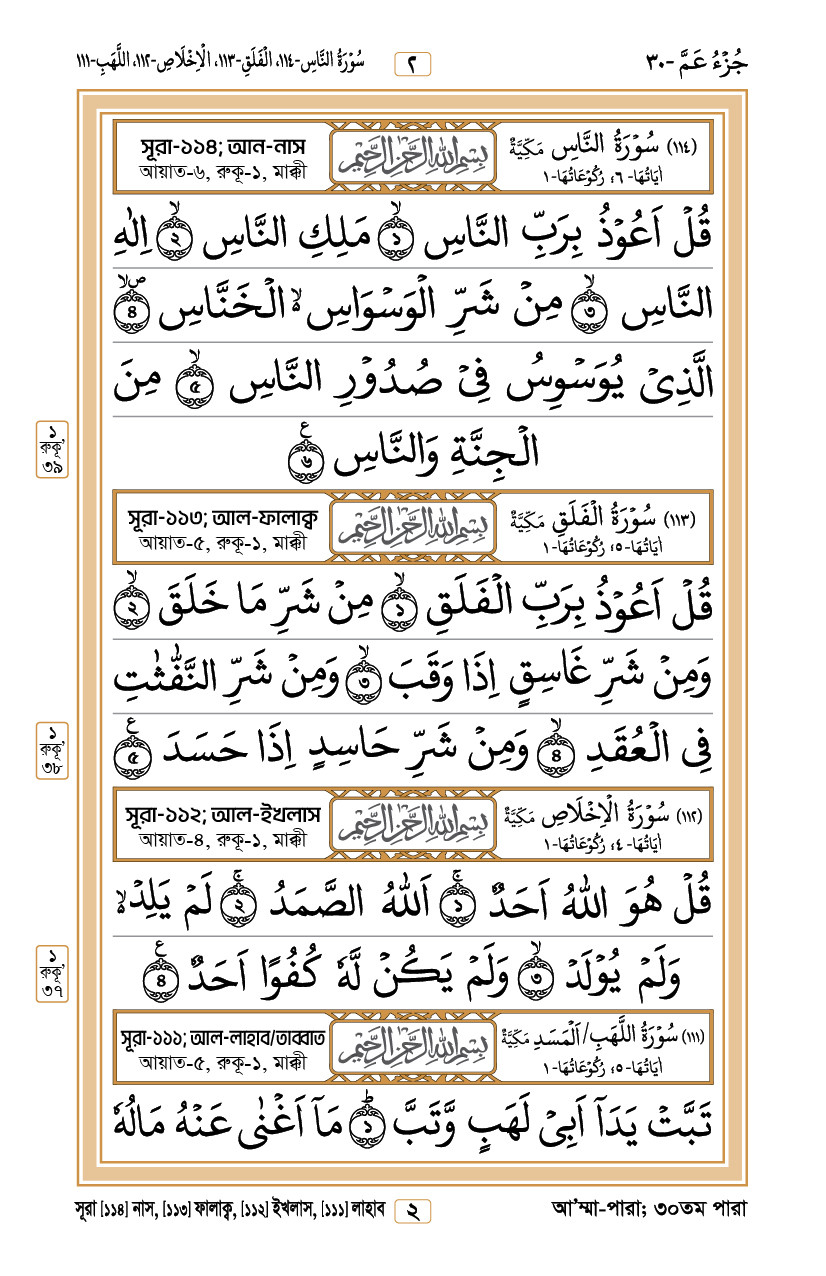 جُزْءُ عَمَّ -٣٠
٢
سُوْرَةُ النَّاسِ-١١٤، الْفَلَقِ-١١٣، الْاِخْلَاصِ-١١٢، اللَّهَبِ-١١١
(١١٤) سُوْرَةُ النَّاسِ مَكِّيَّةٌ
اٰيَاتُهَا-٦، رُكُوْعَاتُهَا-١
بِسْمِ اللهِ الرَّحْمٰنِ الرَّحِيْمِ
সূরা-১১৪; আন-নাস
আয়াত-৬, রুকূ-১, মাক্কী
قُلْ اَعُوْذُ بِرَبِّ النَّاسِ ۙ‏﴿১﴾ مَلِكِ النَّاسِ ۙ‏﴿২﴾ اِلٰهِ
النَّاسِ ۙ‏﴿৩﴾ مِنْ شَرِّ الْوَسْوَاسِ ۙ الْخَنَّاسِ ۪ۙ‏﴿৪﴾
الَّذِىْ يُوَسْوِسُ فِىْ صُدُوْرِ النَّاسِ ۙ‏﴿৫﴾ مِنَ
الْجِنَّةِ وَالنَّاسِ ع﴿৬﴾
১
রুকূ'
৩৯
(١١٣) سُوْرَةُ الْفَلَقِ مَكِّيَّةٌ
اٰيَاتُهَا-٥، رُكُوْعَاتُهَا-١
بِسْمِ اللهِ الرَّحْمٰنِ الرَّحِيْمِ
সূরা-১১৩; আল-ফালাক্ব
আয়াত-৫, রুকূ-১, মাক্কী
قُلْ اَعُوْذُ بِرَبِّ الْفَلَقِ ۙ‏﴿১﴾ مِنْ شَرِّ مَا خَلَقَ ۙ‏﴿২﴾
وَمِنْ شَرِّ غَاسِقٍ اِذَا وَقَبَ ۙ‏﴿৩﴾ وَمِنْ شَرِّ النَّفّٰثٰتِ
فِى الْعُقَدِ ۙ‏﴿৪﴾ وَمِنْ شَرِّ حَاسِدٍ اِذَا حَسَدَ ع﴿৫﴾
১
রুকূ'
৩৮
(١١٢) سُوْرَةُ الْاِخْلَاصِ مَكِّيَّةٌ
اٰيَاتُهَا-٤، رُكُوْعَاتُهَا-١
بِسْمِ اللهِ الرَّحْمٰنِ الرَّحِيْمِ
সূরা-১১২; আল-ইখলাস
আয়াত-৪, রুকূ-১, মাক্কী
قُلْ هُوَ اللهُ اَحَدٌ ۚ‏﴿১﴾ اَللهُ الصَّمَدُ ۚ‏﴿২﴾ لَمْ يَلِدْ ۙ
وَلَمْ يُوْلَدْ ۙ‏﴿৩﴾ وَلَمْ يَكُنْ لَّهٗ كُفُوًا اَحَدٌ ع﴿৪﴾
১
রুকূ'
৩৭
(١١١) سُوْرَةُ اللَّهَبِ/اَلْمَسَدِ مَكِّيَّةٌ
اٰيَاتُهَا-٥، رُكُوْعَاتُهَا-١
بِسْمِ اللهِ الرَّحْمٰنِ الرَّحِيْمِ
সূরা-১১১; আল-লাহাব/তাব্বাত
আয়াত-৫, রুকূ-১, মাক্কী
تَبَّتْ يَدَاۤ اَبِىْ لَهَبٍ وَّتَبَّ ؕ‏﴿১﴾ مَاۤ اَغْنٰى عَنْهُ مَالُهٗ
সূরা [১১৪] নাস, [১১৩] ফালাক্ব, [১১২] ইখলাস, [১১১] লাহাব
২
আ'ম্মা-পারা; ৩০তম পারা